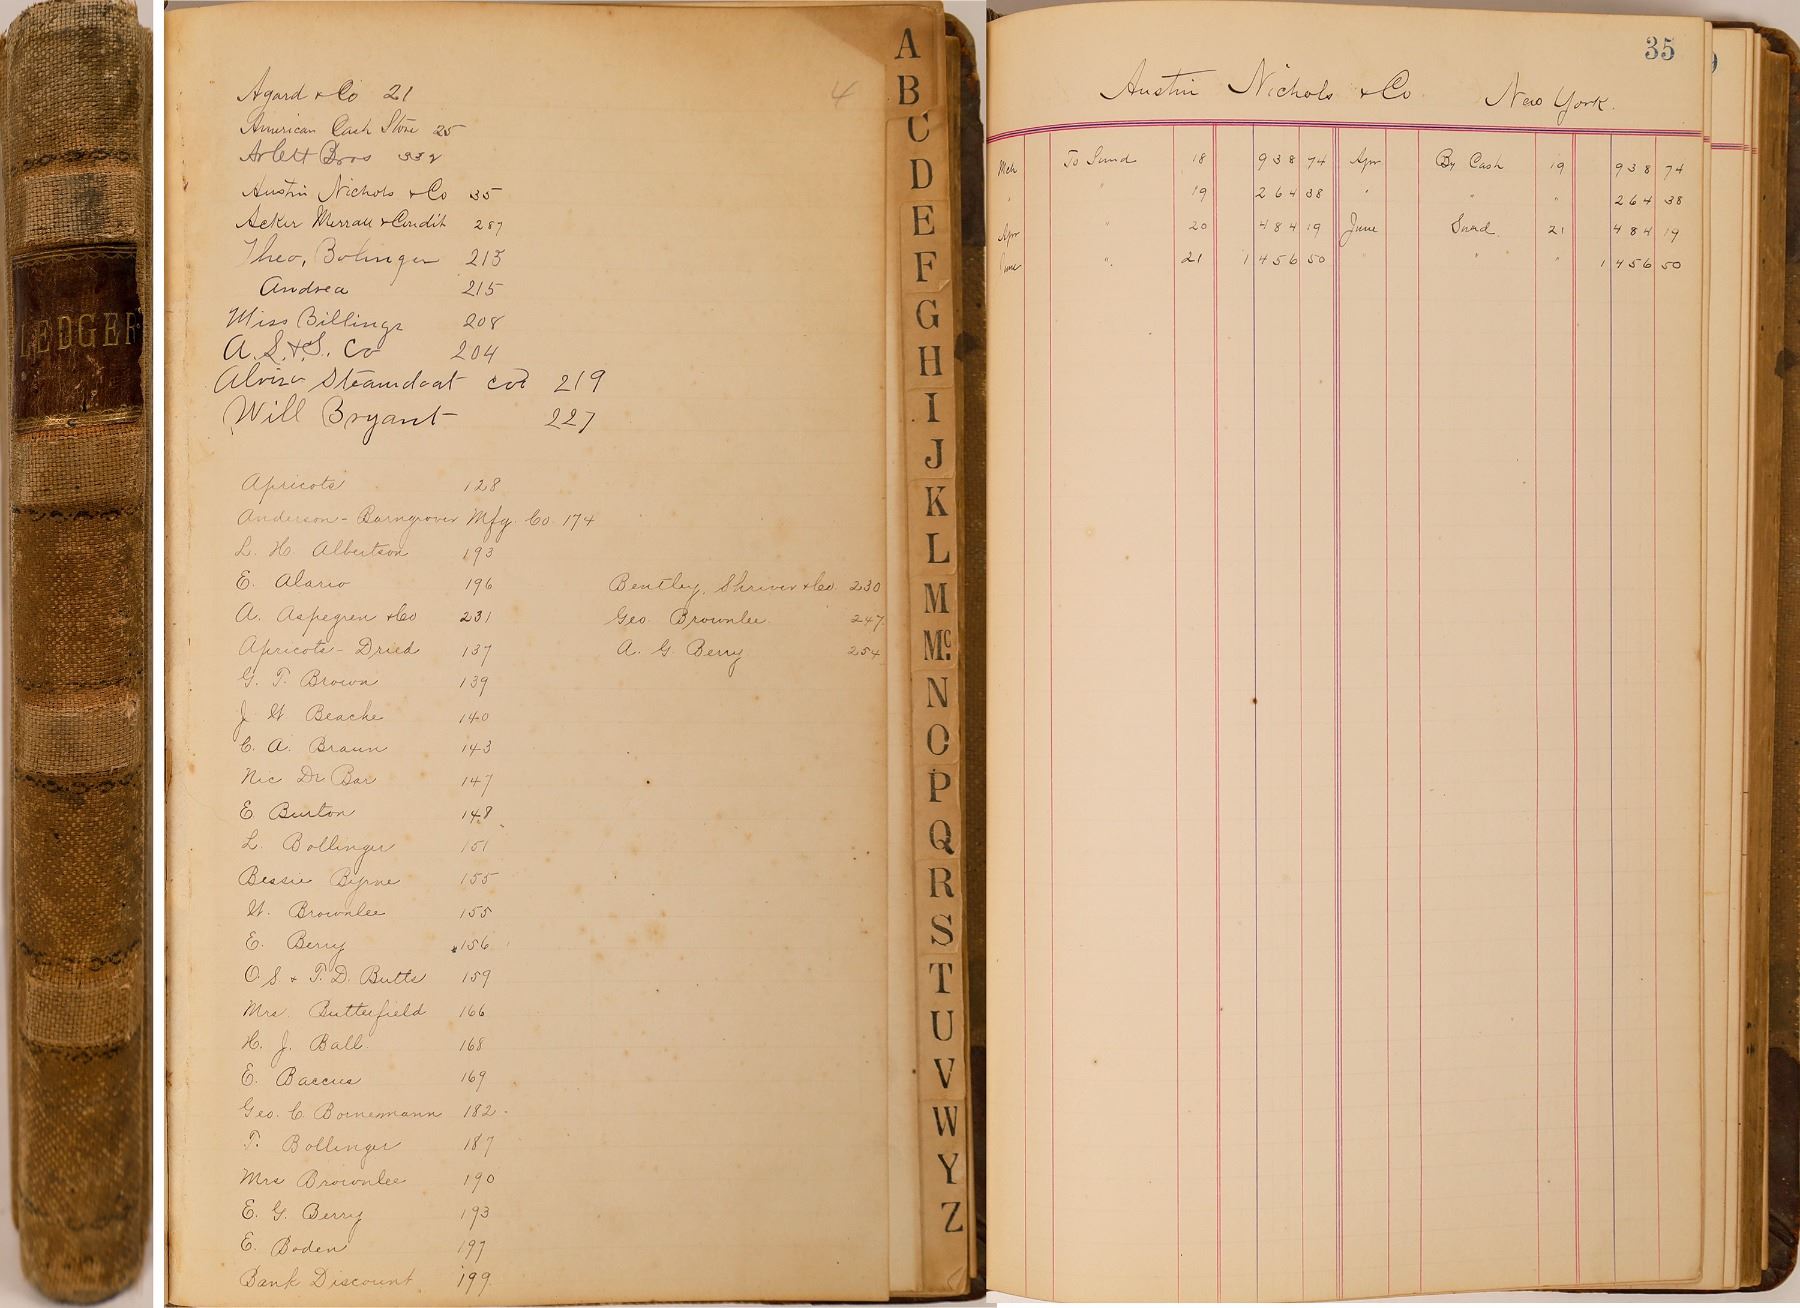 LEDGER
4
Agard & Co 21
American Cash Store 25
Arlett Bros 332
Austin Nichols & Co 35
Acker Merrall & Condit 287
Theo, Bolinger 215
Andrea 215
Miss Billings 208
A. S. & S. Co 204
Alviso Steamboat co 219
Will Bryant 227
Apricots 128
Anderson - Barngrover Mfg. Co. 174
L. H. Albertson 193
E. Alario 196 Bentley, Shriver & Co. 230
A. Aspegren & Co 231 Geo. Brownlee 247
Apricots - Dried 137 A. G. Berry 254
G. T. Brown 139
J W Beache 140
C. A. Braun 143
Nic De Bar 147
E Burton 148
L. Bollinger 151
Bessie Byrne 155
W. Brownlee 155
E. Berry 156
O. S. & T. D. Butts 159
Mrs. Butterfield 166
H. J. Ball 168
E. Baccus 169
Geo. C. Bornemann 182
T. Bollinger 187
Mrs Brownlee 190
E. G. Berry 193
E. Boden 197
Bank Discount 199
A
B
C
D
E
F
G
H
I
J
K
L
M
Mc.
N
O
P
Q
R
S
T
U
V
W
Y
Z
35
Austin Nichols & Co New York.
Mch To Sund 18 938 74 Apr By Cash 19 938 74
" " 19 264 38 " " " 264 38
Apr " 20 484 19 June Sund 21 484 19
June " 21 1456 50 " " " 1456 50